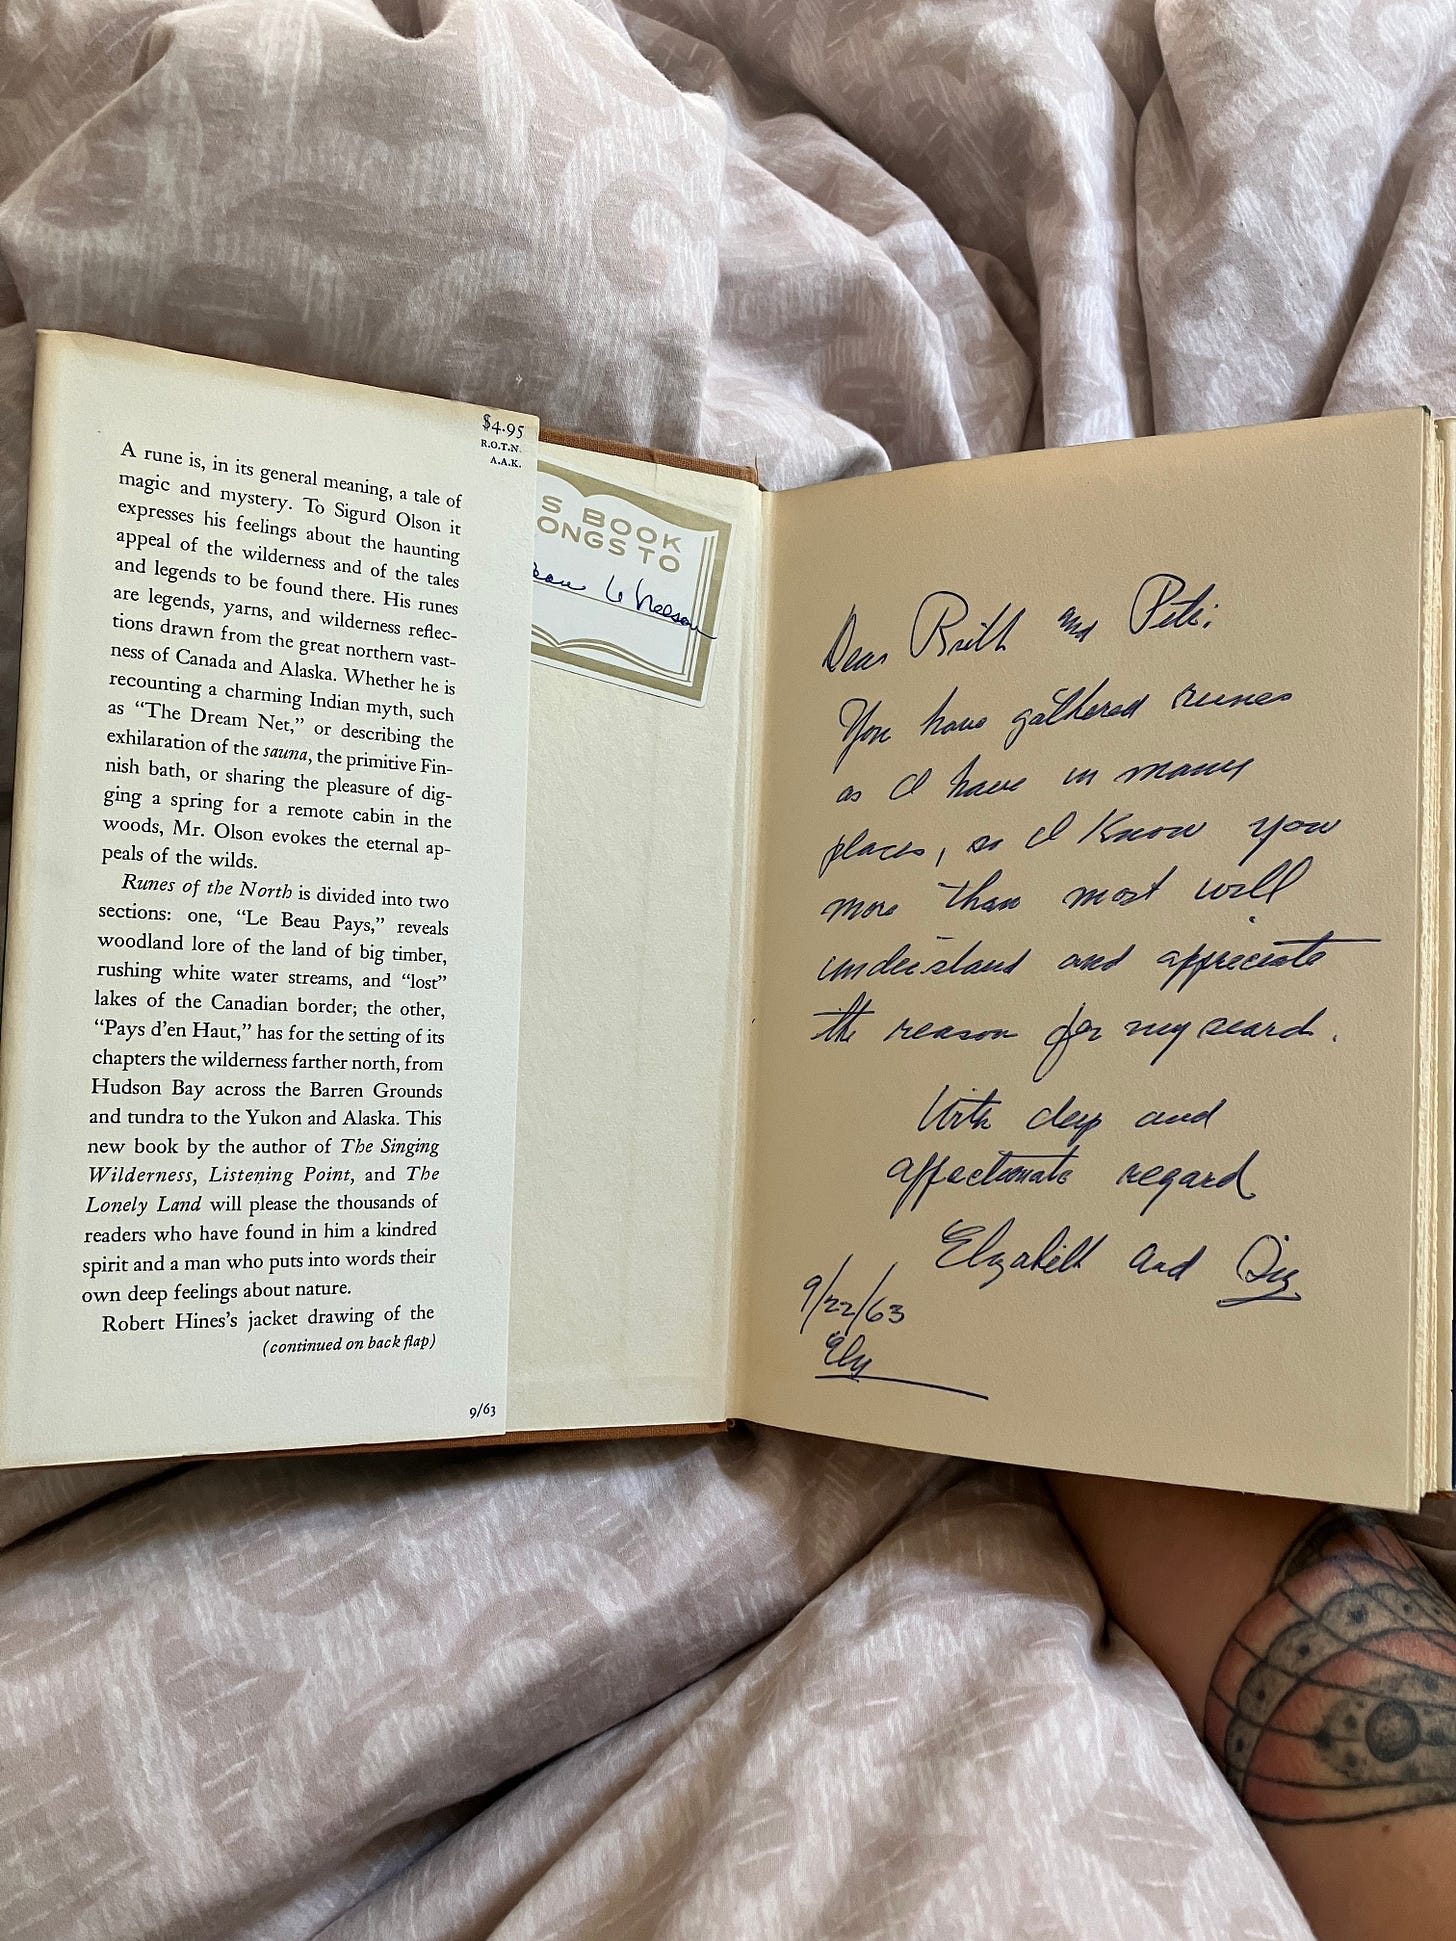 $4.95
R.O.T.N.
A.A.K.
A rune is, in its general meaning, a tale of
magic and mystery. To Sigurd Olson it
expresses his feelings about the haunting
appeal of the wilderness and of the tales
and legends to be found there. His runes
are legends, yarns, and wilderness reflec-
tions drawn from the great northern vast-
ness of Canada and Alaska. Whether he is
recounting a charming Indian myth, such
as “The Dream Net,” or describing the
exhilaration of the sauna, the primitive Fin-
nish bath, or sharing the pleasure of dig-
ging a spring for a remote cabin in the
woods, Mr. Olson evokes the eternal ap-
peals of the wilds.
Runes of the North is divided into two
sections: one, “Le Beau Pays,” reveals
woodland lore of the land of big timber,
rushing white water streams, and “lost”
lakes of the Canadian border; the other,
“Pays d’en Haut,” has for the setting of its
chapters the wilderness farther north, from
Hudson Bay across the Barren Grounds
and tundra to the Yukon and Alaska. This
new book by the author of The Singing
Wilderness, Listening Point, and The
Lonely Land will please the thousands of
readers who have found in him a kindred
spirit and a man who puts into words their
own deep feelings about nature.
Robert Hines’s jacket drawing of the
(continued on back flap)
9/63
S BOOK
ONGS TO
Dear and
You have gathered runes
as I have in many
places, so I know you
more than most will
understand and appreciate
the reason for my search.
With deep and
affectionate regard
Elizabeth and Sig
9/22/63
Ely